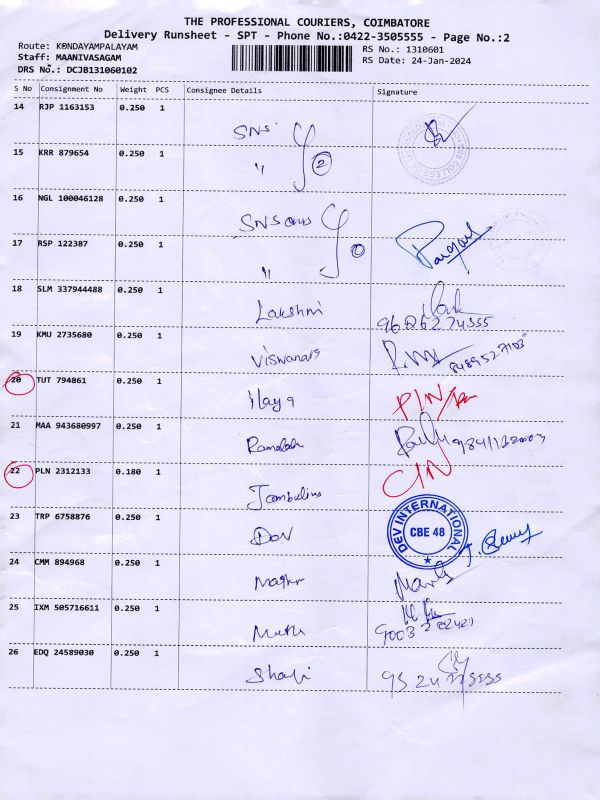 THE PROFESSIONAL COURIERS, COIMBATORE
Delivery Runsheet - SPT - Phone No.:0422-3505555 - Page No.:2
Route: KONDAYAMPALAYAM
RS No.: 1310601
Staff: MAANIVASAGAM
RS Date: 24-Jan-2024
DRS No.: DCJB131060102
S No Consignment No Weight PCS Consignee Details Signature
14 RJP 1163153 0.250 1
SNS
15 KRR 879654 0.250 1
" 2
16 NGL 100046128 0.250 1
SNS
17 RSP 122387 0.250 1
"
18 SLM 337944488 0.250 1
Lakshmi
19 KMU 2735680 0.250 1
Viswanath
20 TUT 794861 0.250 1
PIN
21 MAA 943680997 0.250 1
22 PLN 2312133 0.180 1
CIN
23 TRP 6758876 0.250 1
DEV INTERNATIONAL
CBE 48
24 CMM 894968 0.250 1
25 IXM 505716611 0.250 1
Muthu
26 EDQ 24589030 0.250 1
Shaji